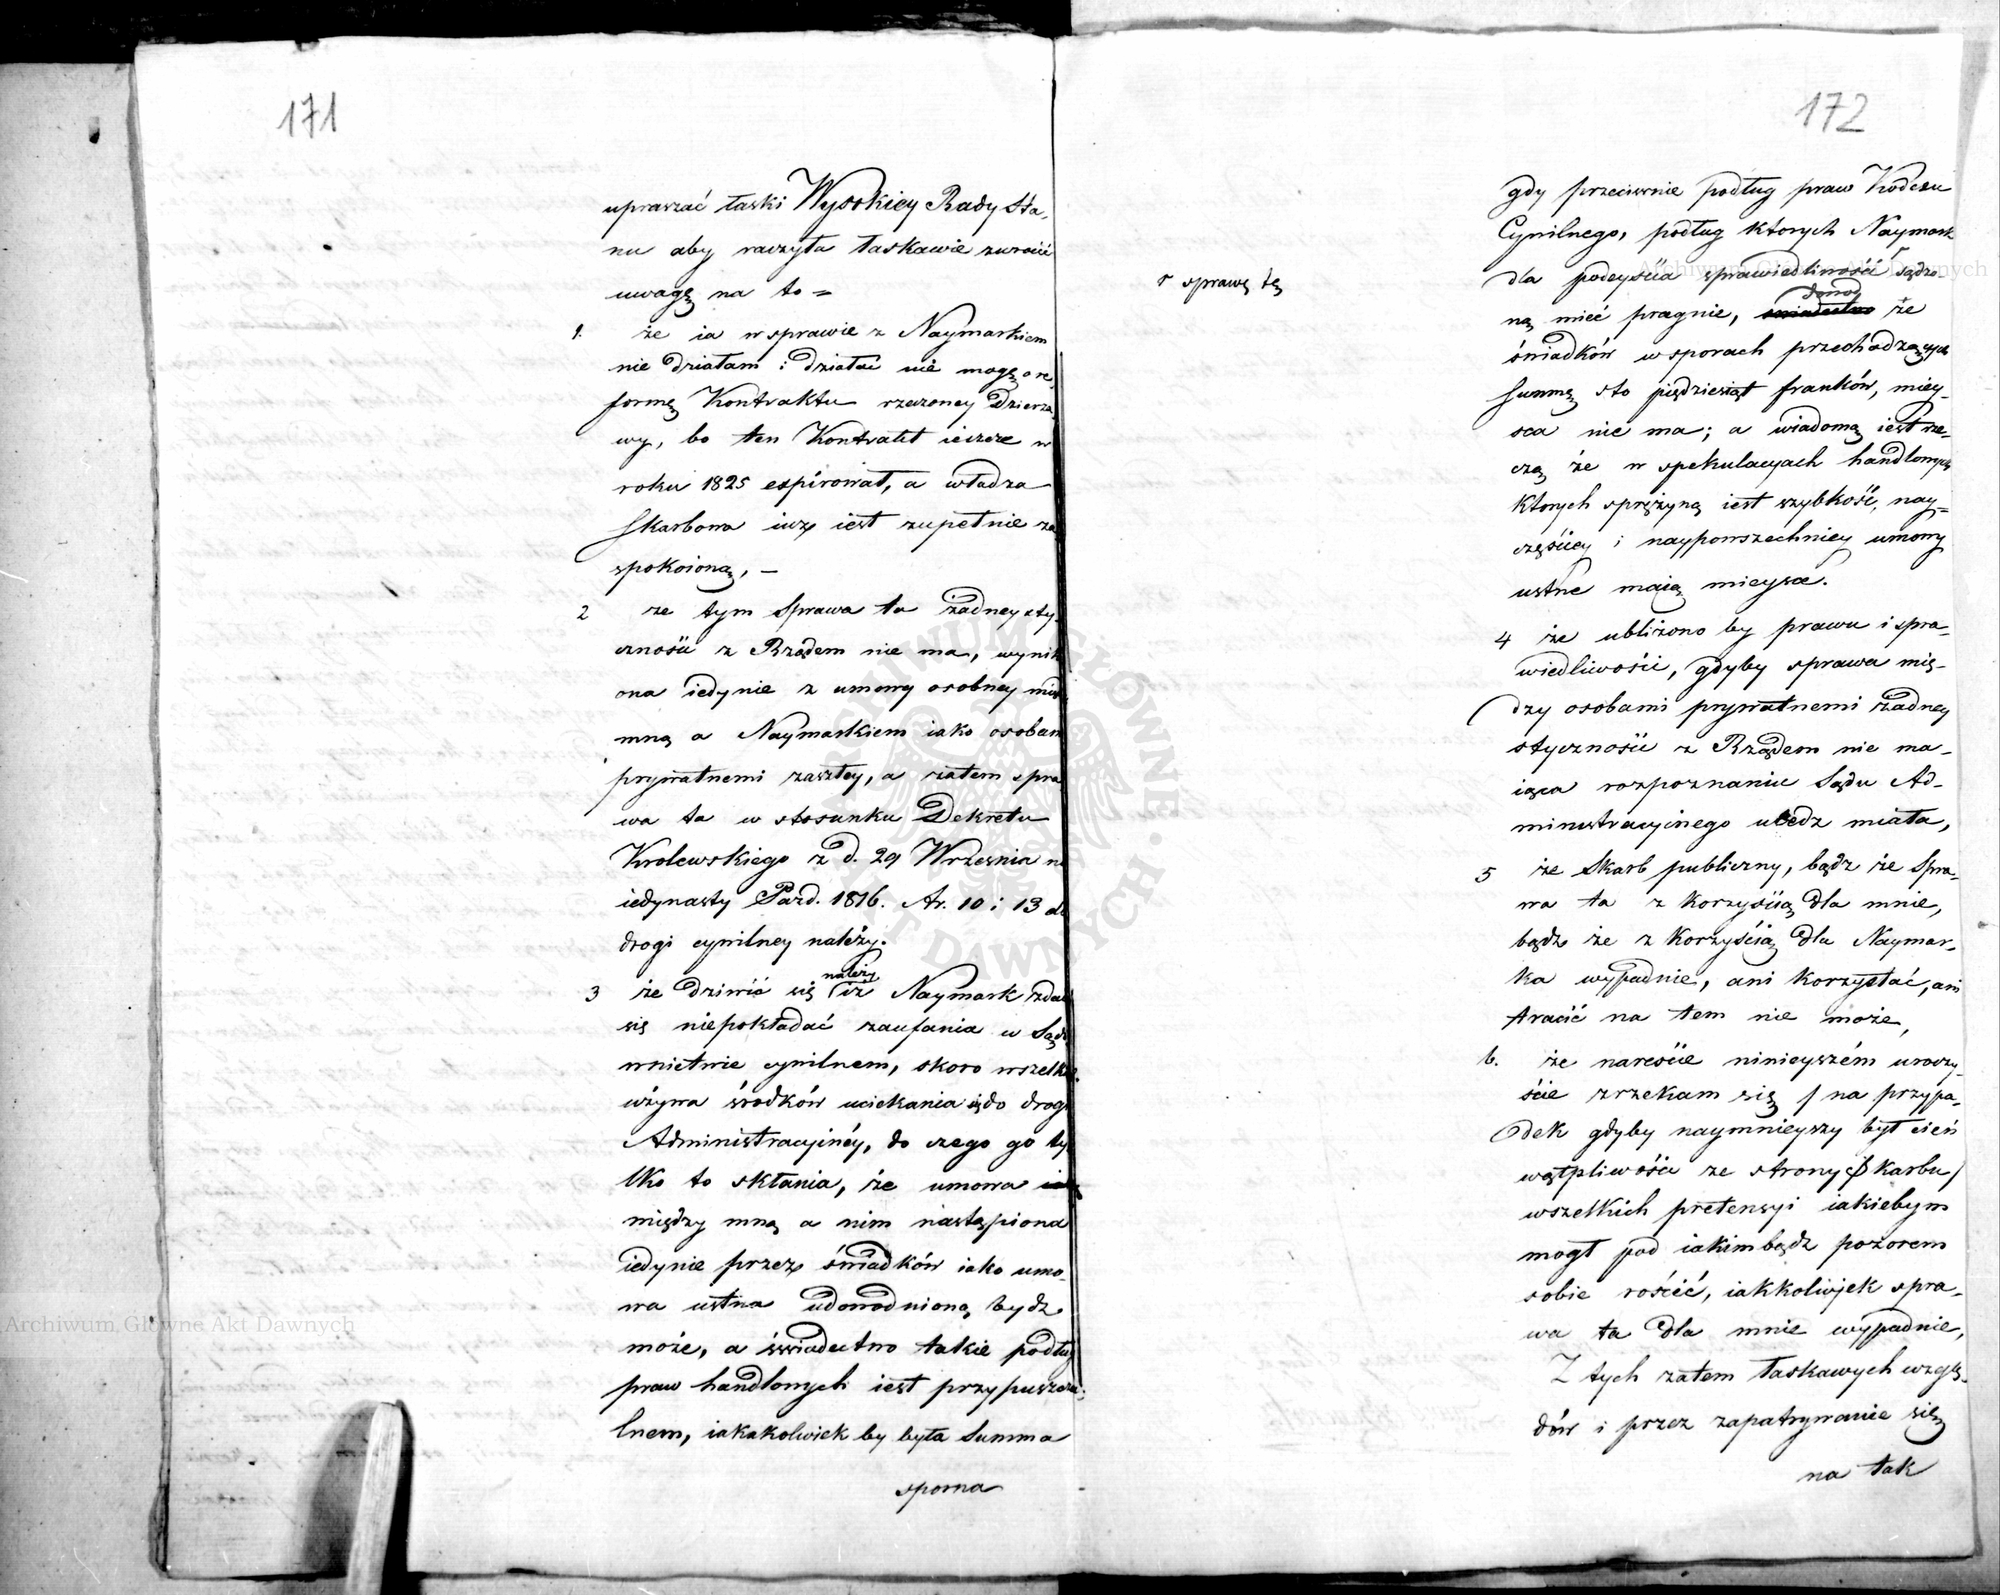 171
upraszać łaski Wysokiey Rady Sta,
nu aby raczyła łaskawie zwrócić
uwagę na to =
1. że ia w sprawie z Naymarkiem
nie działam i działać nie mogę o re,
formę Kontraktu rzeczoney Dzierża,
wy, bo ten Kontrakt ieszcze w
roku 1825 expirował, a władza
Skarbowa iuż iest zupełnie za
spokoioną, —
2 że tym Sprawa ta żadney sty,
czności z Rządem nie ma, wynik
ona iedynie z umowy osobney mię
mną a Naymarkiem iako osobam
prywatnemi zaszłey, a zatem spra
wa ta w stosunku Dekretu
Krolewskiego z d. 29 Września na
iedynasty Pazd. 1816. Ar. 10 i 13 do
drogi cywilney należy.
3 że dziwić się należy iż Naymark zdaie
się niepokładać zaufania w Sądo
wnictwie cywilnem, skoro wszelki
używa środków uciekania się do drogi
Administracyinéy, do czego go ty
lko to skłania, że umowa
między mną a nim nastąpiona
iedynie przez świadków iako umo,
wa ustna udowodnioną bydz
może, a świadectwo takie podług
praw handlowych iest przypuszcza,
lnem, iakakolwiek by była Summa
sporna
172
gdy przeciwnie podług praw Kodexu
Cywilnego, podług ktorych Naymark
dla podeyścia sprawiedliwość sądzo-
r sprawę tę
ną mieć pragnie, świadectwo dowod że
świadków w sporach przechodzących
Summę sto piędziesiąt franków, miey-
sca nie ma; a wiadomą iest rze-
czą że w spekulacyach handlowych
ktorych sprężyną iest szybkość, nay=
częściey i naypowszechniey umowy
ustne maią mieysce.
4 że ubliżono by prawu i spra-
wiedliwości, gdyby sprawa mię-
dzy osobami prywatnemi żadney
styczności z Rządem nie ma-
iąca rozpoznaniu Sądu Ad-
ministracyinego uledz miała,
5 że Skarb publiczny, bądz że Spra-
wa ta z korzyścią dla mnie,
bądz że z korzyścią dla Naymar-
ka wypadnie, ani korzystać, ani
tracić na tem nie może,
6. że nareście ninieyszém uroczy-
ście zrzekam się / na przypa-
dek gdyby naymnieyszy był cień
wątpliwości ze strony Skarbu /
wszelkich pretensyi iakiebym
mogł pod iakimbądz pozorem
sobie rościć, iakkolwiek spra-
wa ta dla mnie wypadnie,
Z tych zatem łaskawych wzglę-
dów i przez zapatrywanie się
na tak
Archiwum Główne Akt Dawnych
Archiwum Główne Akt Dawnych
ARCHIWUM GŁÓWNE AKT DAWNYCH